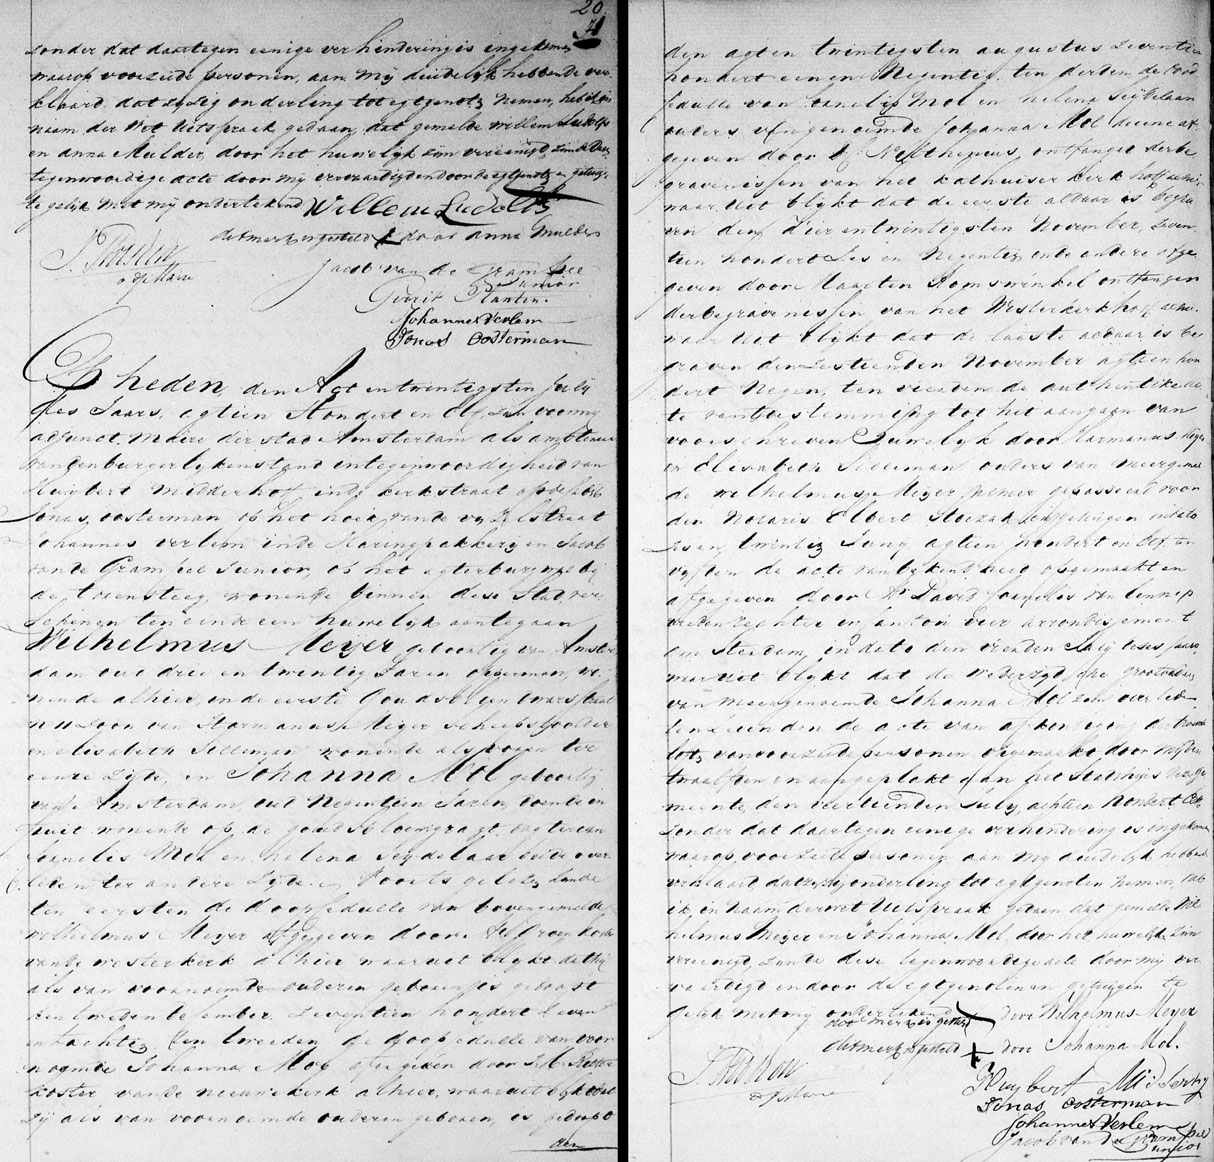 20
zonder dat daartegen eenige verhindering is ingekomen
waarop voorzeide personen, aan mij duidelijk hebbende ver
klaard, dat zij zig onderling tot egtgenoten nemen, heb ik in
naam der Wet Uitspraak gedaan, dat gemelde Willem Ludolfs
en anna Mulder, door het huwelijk zijn vereenigd, zijnde deze
tegenwoordige acte door mij vervaardigd en door de egtgenoten en getuigen
te gelijk met mij ondertekend Willem Ludolfs
dit merk is gesteld door anna Mulder
adj Maire
Jacob van de Grampel
Junior
Gerrit Planten
Johannes Verlem
Jonas Oosterman
Op heden, den Agt en twintigsten July
des Jaars, agtien Hondert en Elf, zijn voor mij
adjunct Maire der stad Amsterdam als ambtenaar
van den burgerlyken stand in tegenwoordigheid van
Huijbert Midderhof, in de kerkstraat
Jonas, oosterman op het hoek van de straat
Johannes verlem in de Haringpakkerij en Jacob
van de Grampel Junior, op het agterburgwal bij
de wonende binnen dese Stad, ver
schenen ten einde een huwelijk aan te gaan
Wilhelmus Meijer geboortig van Amster
dam out drie en twintig Jaren wo
nende alhier, in de eerste Goudsbloem dwars straat
n 11 Zoon van Harmanus Meijer
en elisabeth Selleman wonende als vooren ter
eenre Zyde, en Johanna Mol geboortig
van Amsterdam, out Negentien Jaren,
wonende op de goudsbloemgragt, dogter van
Cornelis Mol en helena Seijdelaar beide over
leden ter andere Zyde. Voorts gelezen hebbende
ten eersten de doopsedulle van bovengemelde
wilhelmus Meijer afgegeven door koster
van de westerkerk alhier waaruit blykt dat hij
als van voornoemde ouderen geboren, is gedoopt
den tweeden Zeventien hondert Zeven
en tachtig. Ten tweeden de doopsedulle van voor
noemde Johanna Mol afgegeven door
koster van de nieuwekerk alhier, waaruit blykt dat
Zij als van voornoemde ouderen geboren, is gedoopt
den
den agten twintigsten augustus Zeventien
hondert een en Negentig, ten derden, de dood
sedulle van Cornelis Mol en helena Seijdelaar
ouders van genoemde Johanna Mol de eene af
gegeven door ontfanger der be
gravenissen van het kathuiser kerkhoff
waar uit blykt dat de eerste aldaar is begra
ven den Vier en twintigsten November, Zeven
tien hondert Ses en Negentig, en de andere afge
geven door Maarten Homswinkel ontfanger
der begravenissen van het Westerkerkhoff
waar uit blykt dat de laaste aldaar is be
graven den Zestienden November agtien hon
dert Negen, ten vierden de authentike ac
te van toestemming tot het aangaan van
voorschreven Huwelyk door Harmanus Meijer
en Elisabeth Selleman ouders van meergemel
de wilhelmus Meijer gepasseerd voor
den Notaris Elbert getuigen in dato
Ses en twintig Juny agtien hondert en Elf en
vyfden de acte van bekentheid opgemaakt en
afgegeven door Mr David Cornelis van Lennep
vrederechter in canton Vier arrondissement
Amsterdam, in dato den vierden July deses Jaars
waar uit blykt dat de wederzydsche grootouders
van meergenoemde Johanna Mol zyn over le
den Zeinden de acte van afkondiging de huwe
lyks van voorzeide personen opgemaakt door my den
twaalften en aangeplakt aan het Stadhuis deser ge
meente, den veertienden July, achtien hondert Elf,
zonder dat daartegen eenige verhindering is ingekomen
waarop, voorzeide personen aan mij duidelijk hebbende
verklaard, dat zij zig onderling tot egtgenoten nemen, heb
ik, in naam der wet Uitspraak gedaan dat gemelde Wil
helmus Meijer en Johanna Mol door het huwelijk zijn
vereenigd, zijnde dese tegenwoordige acte door mij ver
vaardigd en door de egtgenoten en getuigen te
gelijk met mij ondertekend
dit merk is gesteld door Wilhelmus Meyer
dit merk is gesteld door Johanna Mol.
adj Maire
Huybert Midderhof
Jonas Oosterman
Johannes Verlem
Jacob van de Grampel
Junior